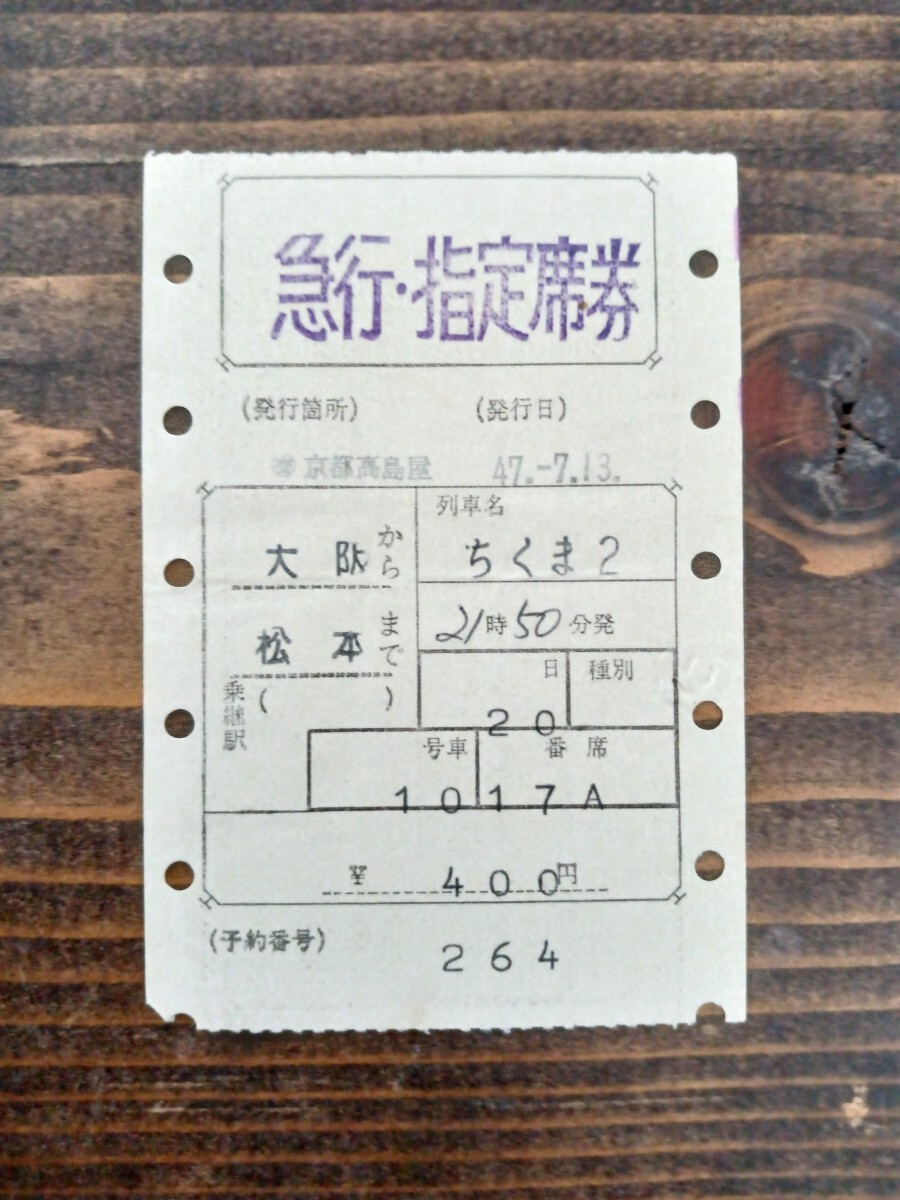 急行・指定席券
(発行箇所) (発行日)
京都高島屋 47.-7.13.
大阪から
松本まで
乗継駅 ( )
列車名
ちくま2
21時50分発
日 種別
20
号車 番席
10 17A
400円
(予約番号)
264